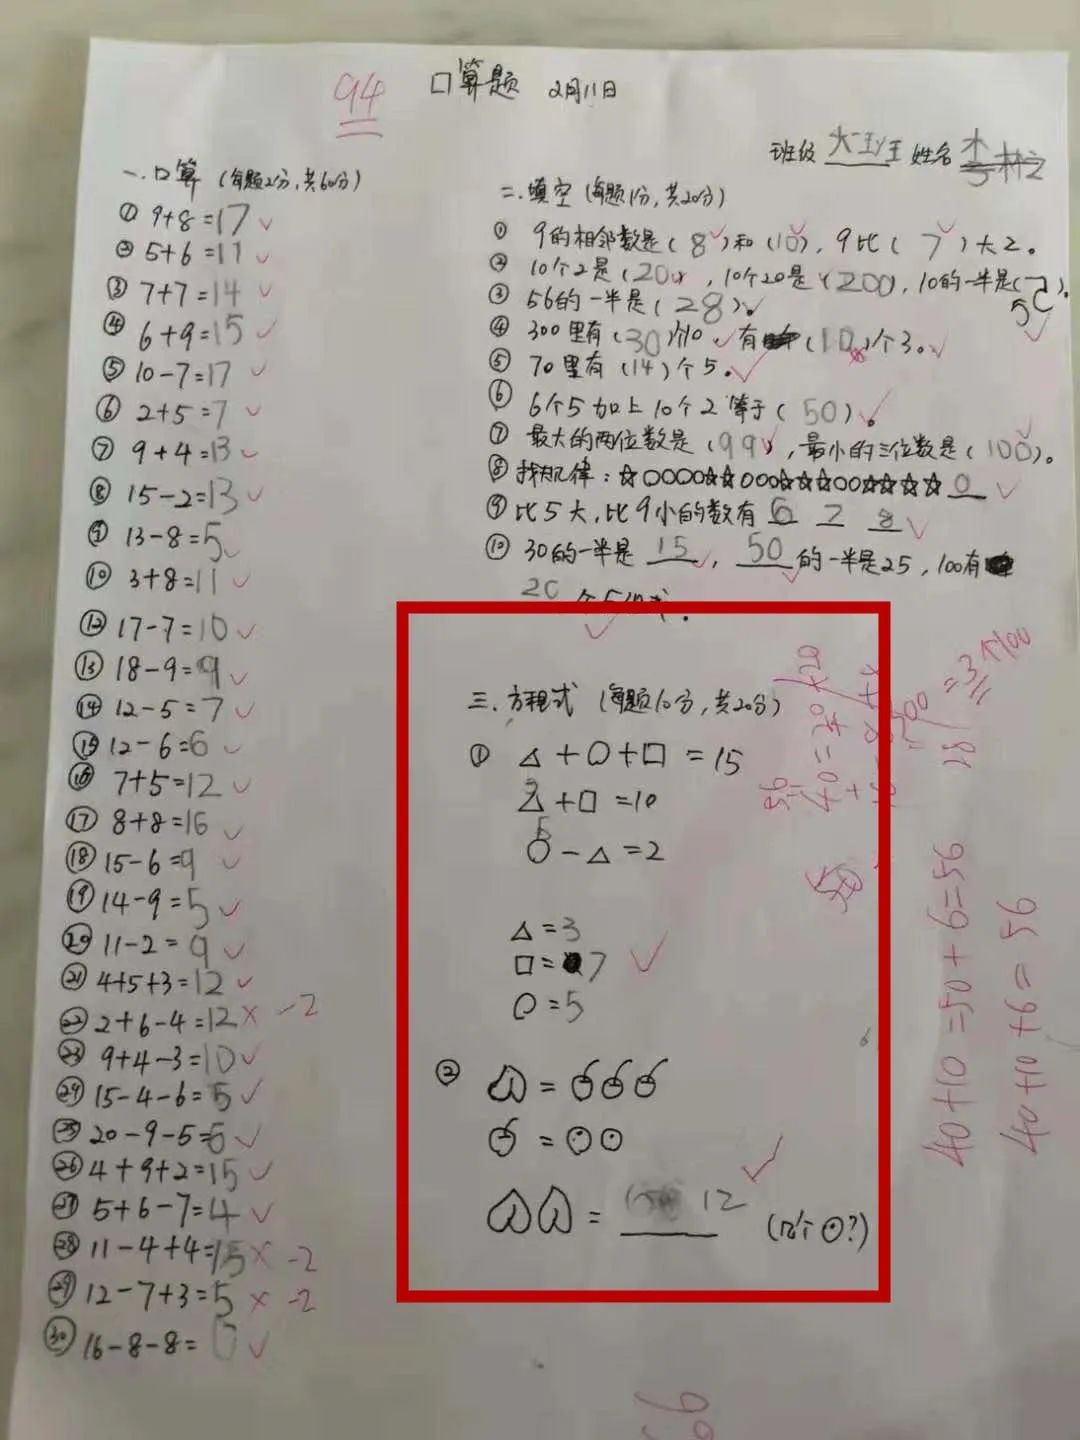 94
口算题 2月11日
班级 姓名
一.口算(每题2分,共60分)
① 9+8=17
② 5+6=11
③ 7+7=14
④ 6+9=15
⑤ 10-7=17
⑥ 2+5=7
⑦ 9+4=13
⑧ 15-2=13
⑨ 13-8=5
⑩ 3+8=11
⑫ 17-7=10
⑬ 18-9=9
⑭ 12-5=7
⑮ 12-6=6
⑯ 7+5=12
⑰ 8+8=16
⑱ 15-6=9
⑲ 14-9=5
⑳ 11-2=9
㉑ 4+5+3=12
㉒ 2+6-4=12 × -2
㉓ 9+4-3=10
㉔ 15-4-6=5
㉕ 20-9-5=6
㉖ 4+9+2=15
㉗ 5+6-7=4
㉘ 11-4+4=15 × -2
㉙ 12-7+3=5 × -2
㉚ 16-8-8=0
二.填空(每题1分,共20分)
① 9的相邻数是(8)和(10),9比(7)大2。
② 10个2是(20),10个20是(200),10的一半是( )。
5
③ 56的一半是(28)。
④ 300里有(30)个10 有(10)个3。
⑤ 70里有(14)个5。
⑥ 6个5加上10个2等于(50)。
⑦ 最大的两位数是(99),最小的三位数是(100)。
⑧ 找规律:☆○○○○☆☆○○○☆☆☆○○☆☆☆☆ 0
⑨ 比5大,比9小的数有 6 7 8
⑩ 30的一半是 15 , 50 的一半是25,100有
20
三.方程式(每题10分,共20分)
① △+○+□=15
3
△+□=10
5
○-△=2
△=3
□=7
○=5
②
=
=
= 12 (几个⊙?)
=3个100
40+10=50+6=56
40+10+6=56